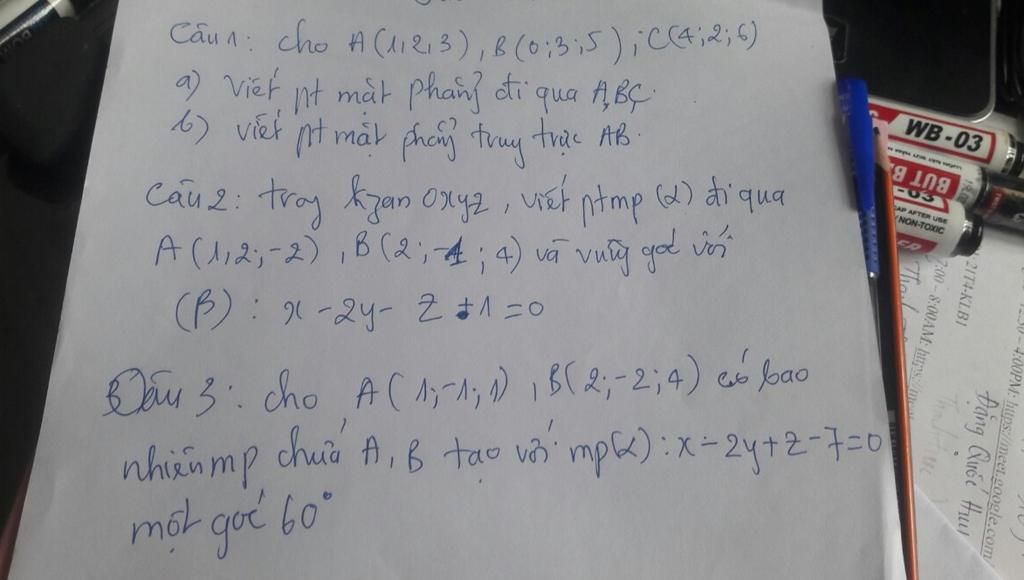 Câu 1: cho A(1,2,3), B(0;3;5), C(4;2;6)
a) viết pt mặt phẳng đi qua A,B,C.
b) viết pt mặt phẳng trung trực AB.
Câu 2: trong kgian Oxyz, viết ptmp (α) đi qua
A(1,2;-2), B(2;-1;4) và vuông góc với
(β): x - 2y - z + 1 = 0
Câu 3: cho A(1;-1;1), B(2;-2;4) có bao
nhiêu mp chứa A, B tạo với mp(α): x - 2y + z - 7 = 0
một góc 60°
WB-03
BÚT B
-03
CAP AFTER USE
NON-TOXIC
ER
21T4KLB1
Đặng Quốc